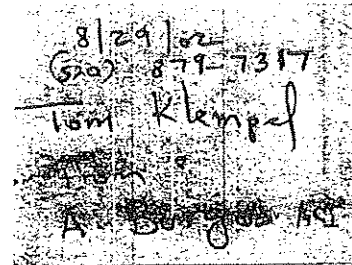 8/29/02
(520) 879-7317
Tom Klempel
A. Burgos